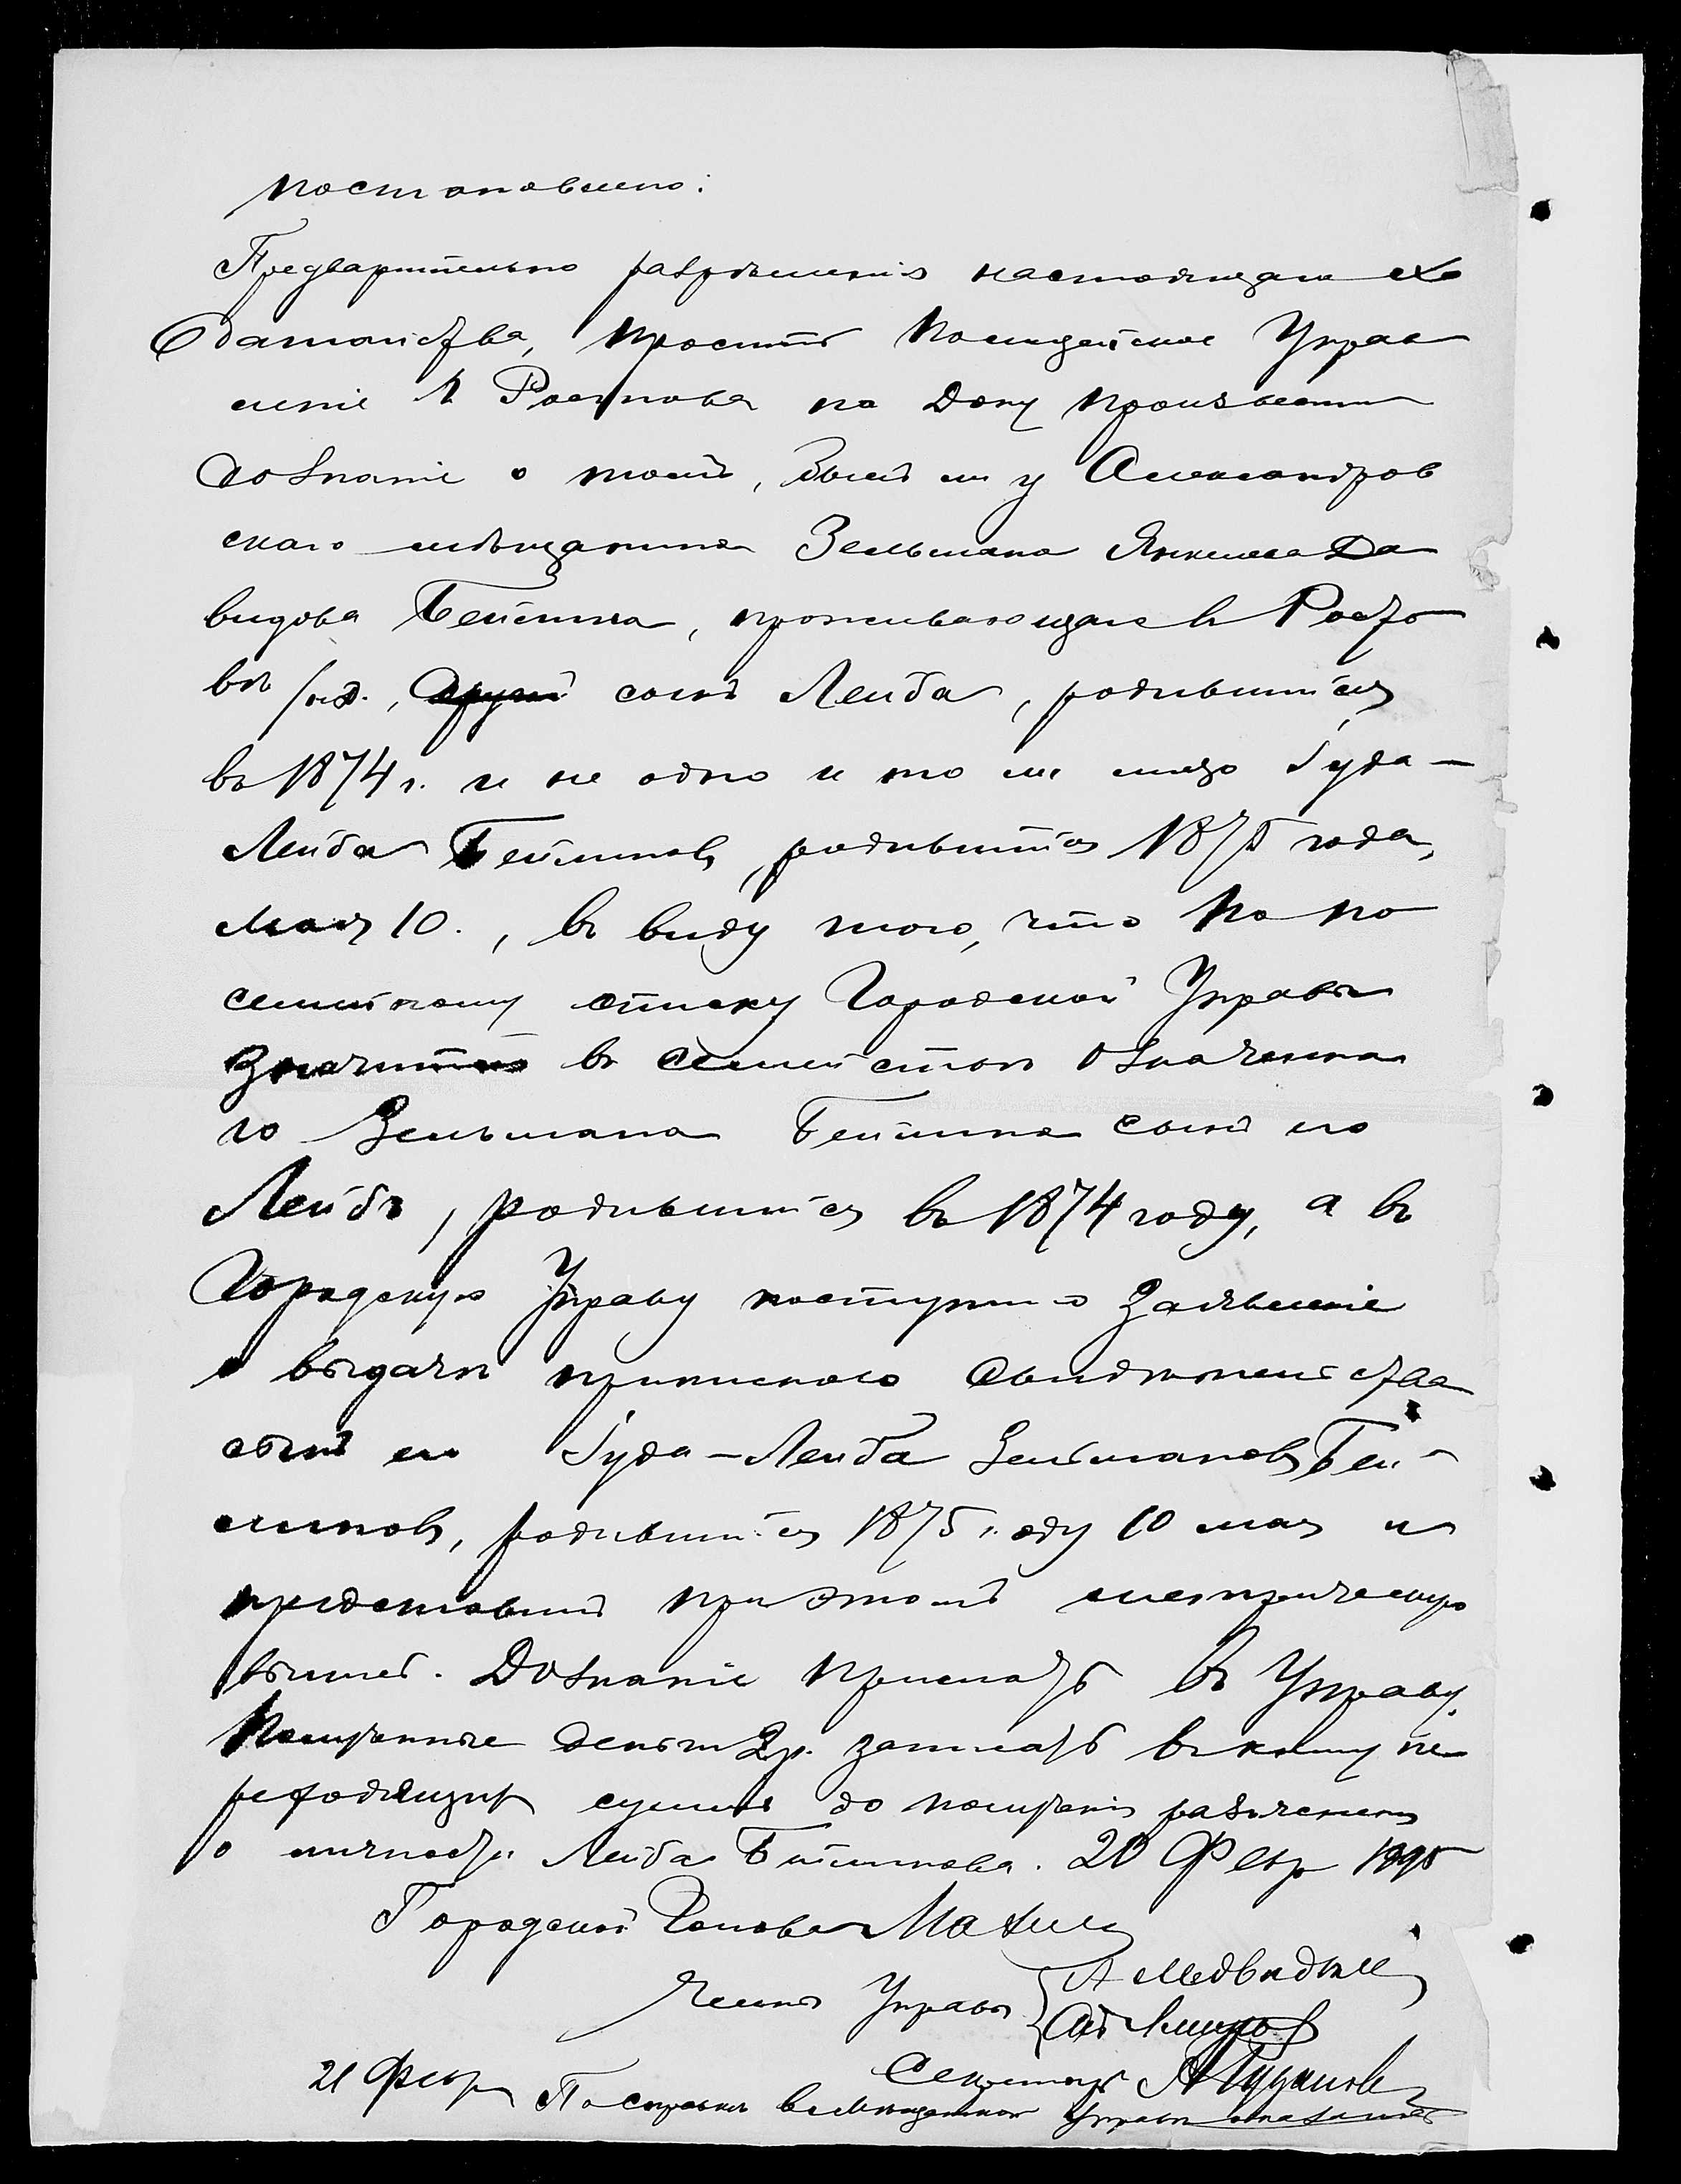 постановлено:
Предварительно разрѣшенія настоящаго хо
датайства, просить Полицейское Управ
леніе г. Ростова на Дону произвести
дознаніе о томъ, былъ ли у Александров
скаго мѣщанина Зельмана Янкелева Да
видова Бейлина, проживающаго въ Росто
вѣ н/Д., другой сынъ Лейба, родившійся
въ 1874 г. и не одно и то же лицо Іуда-
Лейба Бейлинъ, родившійся 1875 года,
мая 10., въ виду того, что по по
семейному списку Городской Управы
значится въ семействѣ означенна
го Зельмана Бейлина сынъ его
Лейбъ, родившійся въ 1874 году, а въ
Городскую Управу поступило заявленіе
о выдачѣ приписного свидѣтельства
сынъ его Іуда-Лейба Зельмановъ Бей
линовъ, родившійся 1875 году 10 мая и
представилъ при этомъ метрическую
выпись. Дознаніе прислать въ Управу.
Полученные деньги 2 р. записать въ книгу пе
реходящихъ суммъ до полученія разъясненія
о личности Лейба Бейлинова. 20 Февр 1895
Городской Голова
Члены Управы
Секретарь
21 Февр По справкѣ въ Мѣщанской Управѣ оказалось